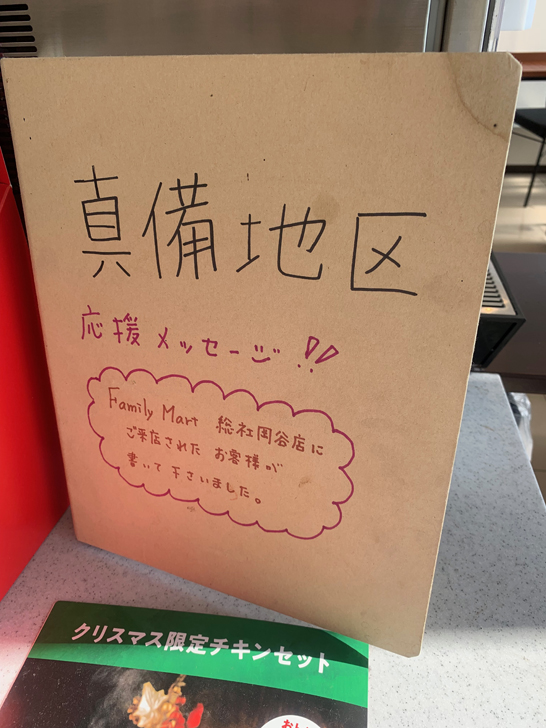 真備地区
応援メッセージ!!
Family Mart 総社岡谷店に
ご来店された お客様が
書いて下さいました。
クリスマス限定チキンセット